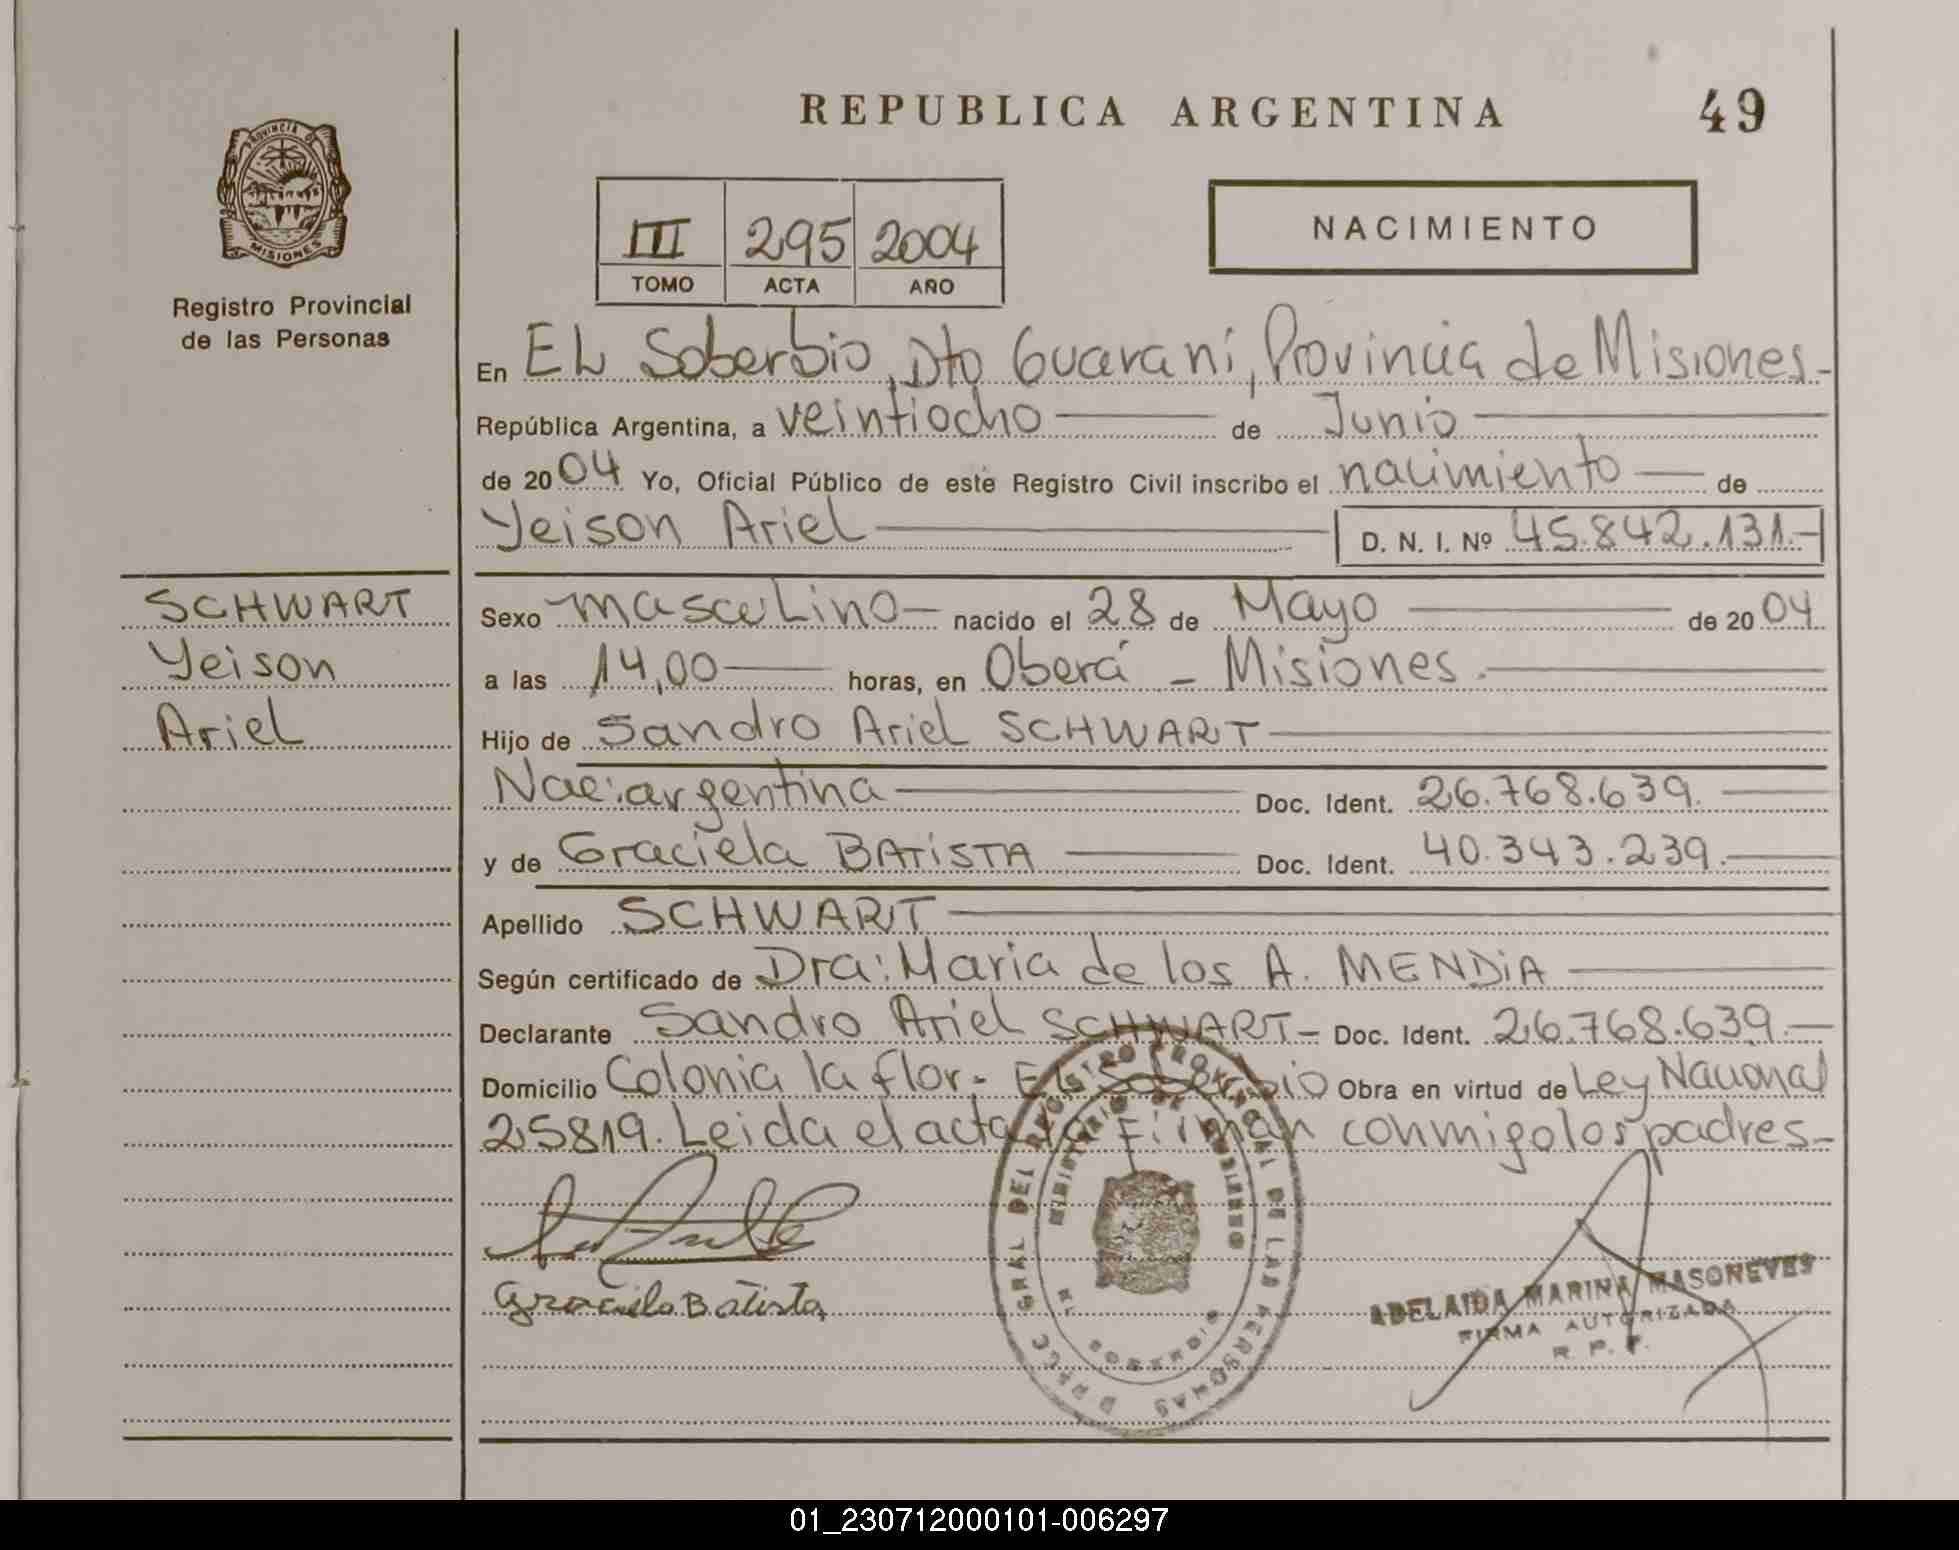 REPUBLICA ARGENTINA
49
PROVINCIA DE
MISIONES
Registro Provincial
de las Personas
III 295 2004
TOMO ACTA AÑO
NACIMIENTO
En EL Soberbio, Dto Guaraní, Provincia de Misiones.-
República Argentina, a veintiocho de Junio
de 2004 Yo, Oficial Público de este Registro Civil inscribo el nacimiento de
Yeison Ariel D. N. I. Nº 45.842.131.-
SCHWART
Yeison
Ariel
Sexo masculino nacido el 28 de Mayo de 2004
a las 14,00 horas, en Oberá - Misiones.
Hijo de Sandro Ariel SCHWART
Nac: argentina Doc. Ident. 26.768.639.
y de Graciela BATISTA Doc. Ident. 40.343.239.
Apellido SCHWART
Según certificado de Dra: Maria de los A. MENDIA
Declarante Sandro Ariel SCHWART- Doc. Ident. 26.768.639.
Domicilio Colonia la flor- El Soberbio Obra en virtud de Ley Nacional
25819. Leida el acta la Firman conmigo los padres.-
Graciela Batista
GRAL DEL REGISTRO PROVINCIAL DE LAS PERSONAS
MINISTERIO DE GOBIERNO
EL SOBERBIO
ADELAIDA MARINA MASONEVES
FIRMA AUTORIZADA
R. P. P.
01_230712000101-006297